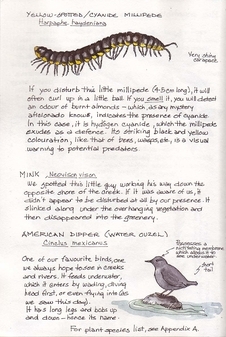 YELLOW-SPOTTED/CYANIDE MILLIPEDE
Harpaphe haydeniana
Very shiny
carapace
If you disturb this little millipede (4-5cm long), it will
often curl up in a little ball. If you smell it, you will detect
an odour of burnt almonds - which, as any mystery
aficionado knows, indicates the presence of cyanide.
In this case, it is hydrogen cyanide, which the millipede
exudes as a defence. Its striking black and yellow
colouration, like that of bees, wasps, etc., is a visual
warning to potential predators.
MINK, Neovison vison
We spotted this little guy working his way down the
opposite shore of the creek. If it was aware of us, it
didn't appear to be disturbed at all by our presence. It
slinked along under the overhanging vegetation and
then disappeared into the greenery.
AMERICAN DIPPER (WATER OUZEL)
Cinclus mexicanus
Possesses a
nictitating membrane
which allows it to see
underwater
short
tail
One of our favourite birds, one
we always hope to see in creeks
and rivers. It feeds underwater,
which it enters by wading, diving
head first, or even flying into (as
we saw this day).
It has long legs and bobs up
and down - hence its name.
For plant species list, see Appendix A.